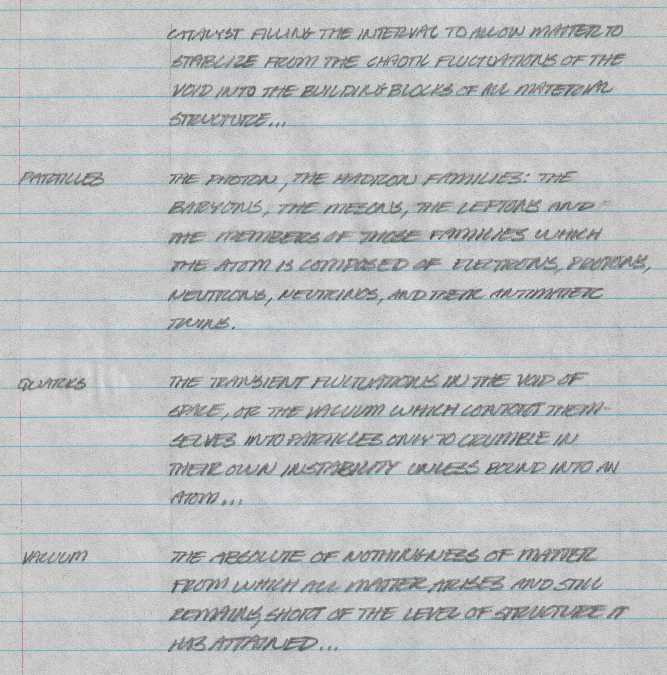 CATALYST FILLING THE INTERVAL TO ALLOW MATTER TO
STABLIZE FROM THE CHAOTIC FLUCTUATIONS OF THE
VOID INTO THE BUILDING BLOCKS OF ALL MATERIAL
STRUCTURE...
PARTICLES THE PHOTON, THE HADRON FAMILIES: THE
BARYONS, THE MESONS, THE LEPTONS AND
THE MEMBERS OF THOSE FAMILIES WHICH
THE ATOM IS COMPOSED OF ELECTRONS, PROTONS,
NEUTRONS, NEUTRINOS, AND THEIR ANTIMATTER
TWINS.
QUARKS THE TRANSIENT FLUCTUATIONS IN THE VOID OF
SPACE, OR THE VACUUM WHICH CONTORT THEM-
SELVES INTO PARTICLES ONLY TO CRUMBLE IN
THEIR OWN INSTABILITY UNLESS BOUND INTO AN
ATOM...
VACUUM THE ABSOLUTE OF NOTHINGNESS OF MATTER
FROM WHICH ALL MATTER ARISES AND STILL
REMAINS, SHORT OF THE LEVEL OF STRUCTURE IT
HAS ATTAINED...